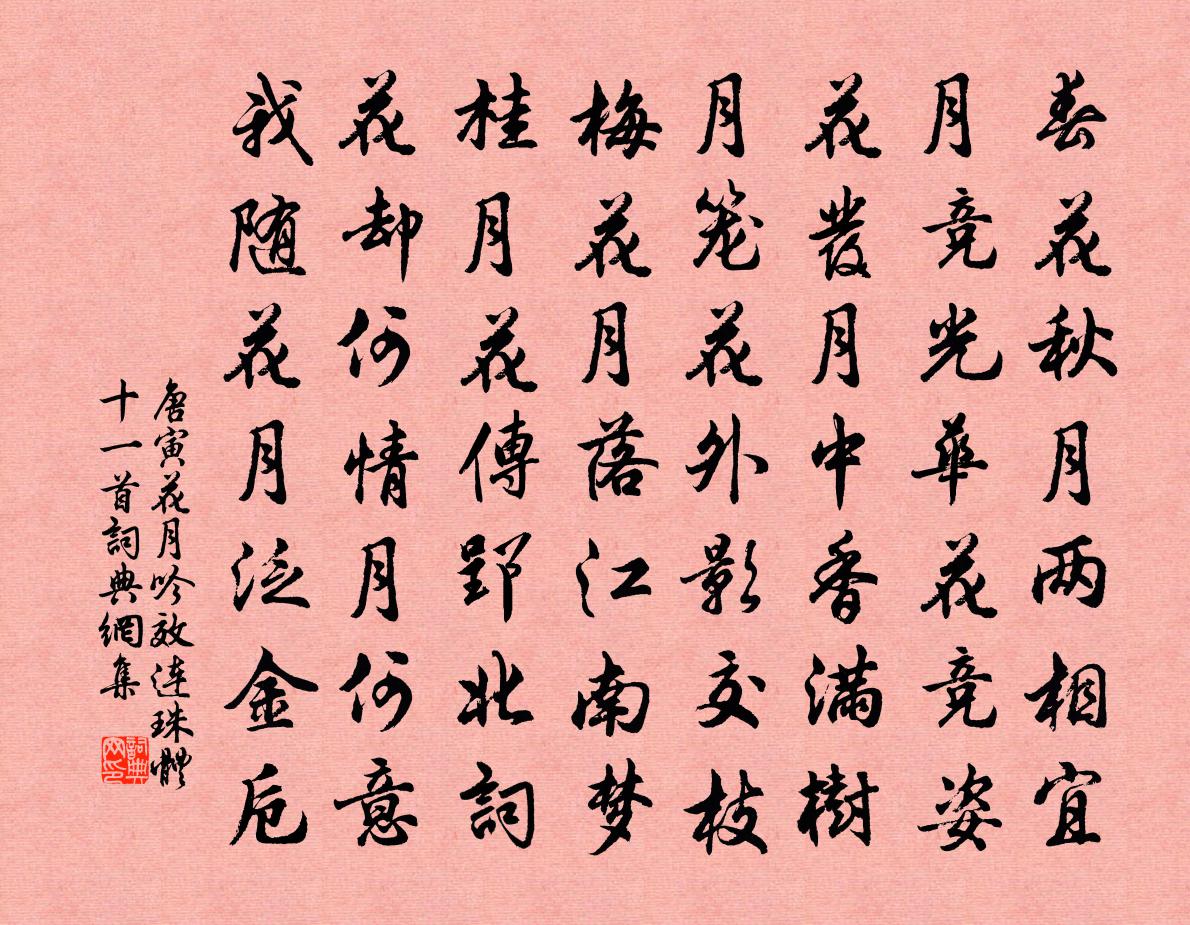 春花秋月两相宜
月竞光华花竞姿
花發月中香满樹
月笼花外影交枝
梅花月落江南梦
桂月花傳郢北詞
花却何情月何意
我随花月泛金卮
唐寅花月吟效连珠體
十一首詞典網集
詞典网印